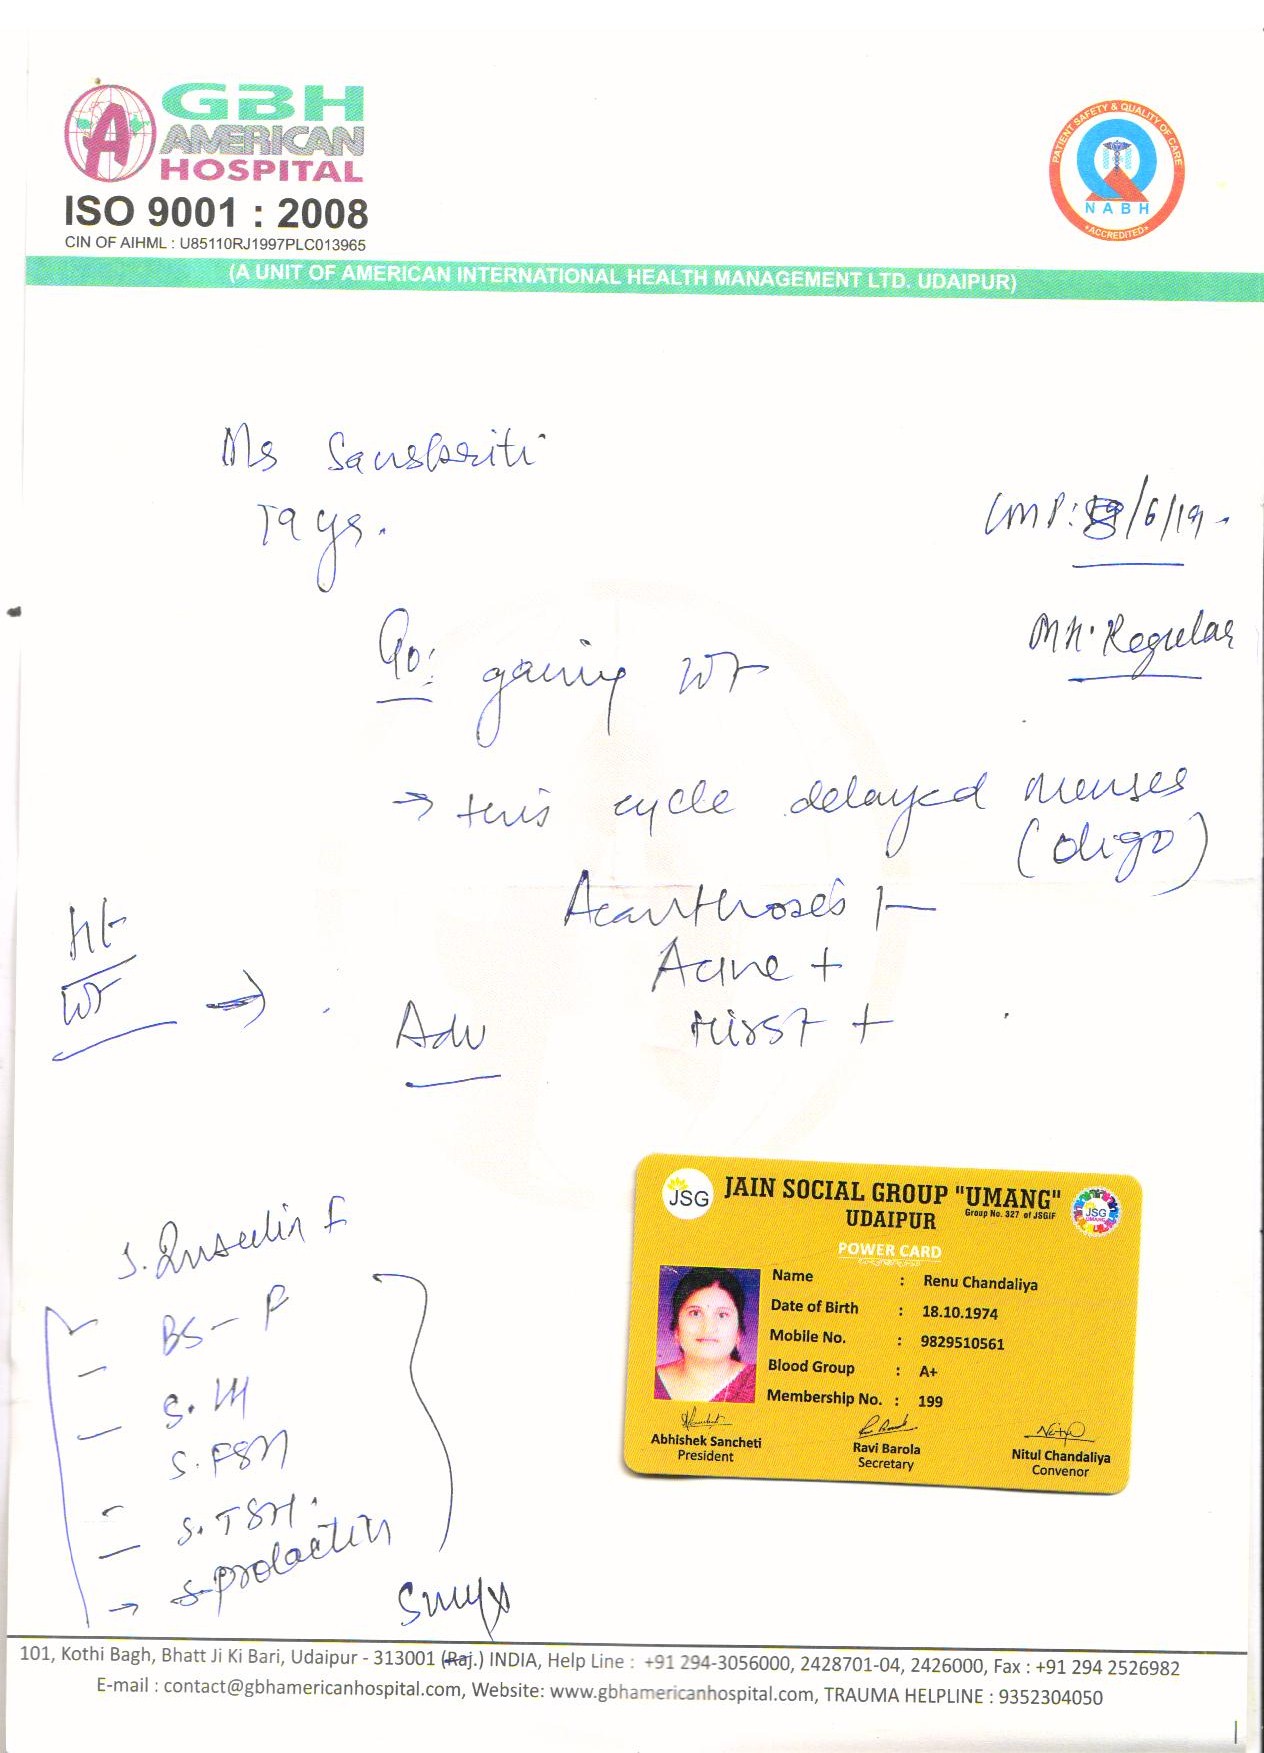 GBH
AMERICAN
HOSPITAL
ISO 9001 : 2008
CIN OF AIHML : U85110RJ1997PLC013965
PATIENT SAFETY & QUALITY OF CARE
NABH
•ACCREDITED•
(A UNIT OF AMERICAN INTERNATIONAL HEALTH MANAGEMENT LTD. UDAIPUR)
Ms Sanskriti
19 ys.
LMP: /6/19.
MH. Regular
gaining wt
→ this cycle delayed menses
(oligo)
Acanthosis
Acne +
Hirst +
Ht
Wt →
Adv
S. Insulin F
BS - F
S. LH
S. FSH
S. TSH.
→ S-prolactin
JSG
JAIN SOCIAL GROUP "UMANG"
Group No. 327 of JSGIF
UDAIPUR
JSG
UMANG
POWER CARD
Name : Renu Chandaliya
Date of Birth : 18.10.1974
Mobile No. : 9829510561
Blood Group : A+
Membership No. : 199
Abhishek Sancheti
President
Ravi Barola
Secretary
Nitul Chandaliya
Convenor
101, Kothi Bagh, Bhatt Ji Ki Bari, Udaipur - 313001 (Raj.) INDIA, Help Line : +91 294-3056000, 2428701-04, 2426000, Fax : +91 294 2526982
E-mail : contact@gbhamericanhospital.com, Website: www.gbhamericanhospital.com, TRAUMA HELPLINE : 9352304050